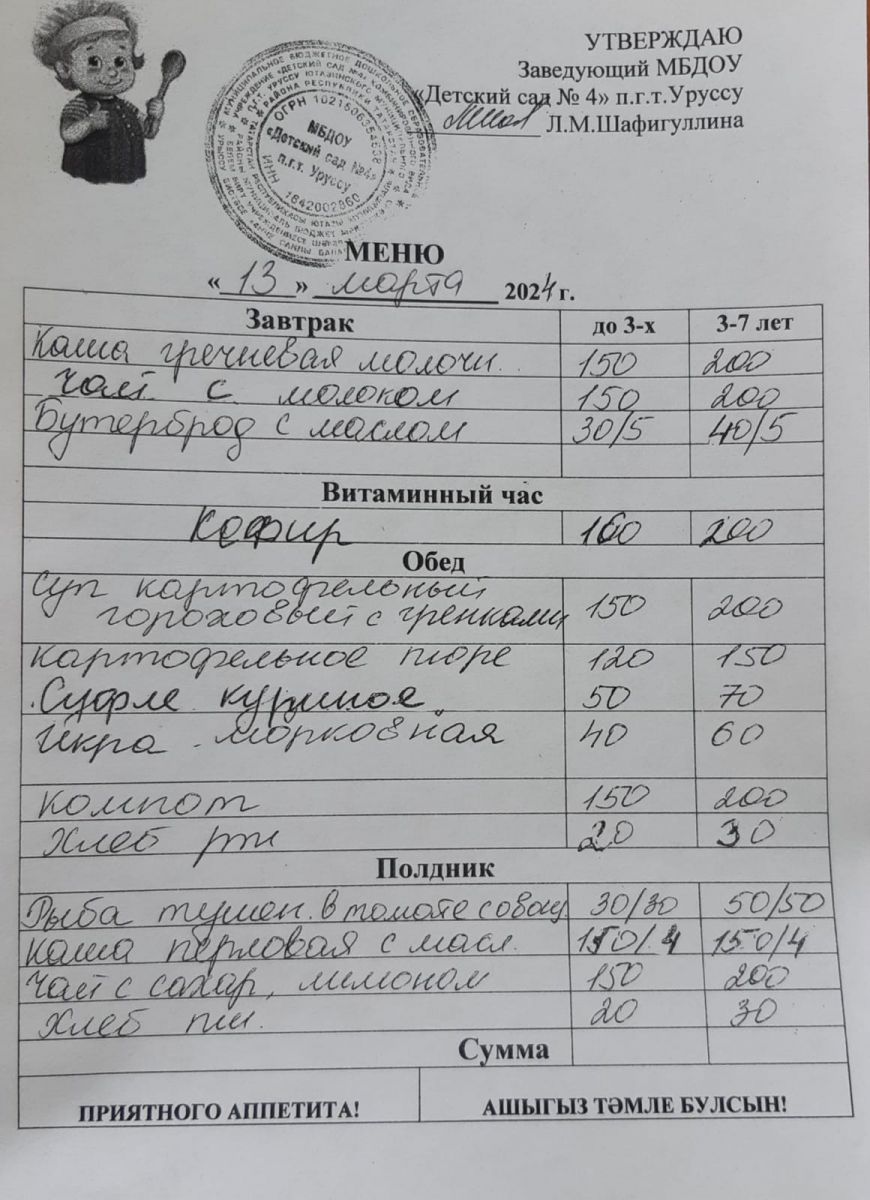 УТВЕРЖДАЮ
Заведующий МБДОУ
«Детский сад № 4» п.г.т.Уруссу
Л.М.Шафигуллина
ОГРН 1021606354538
МБДОУ
«Детский сад №4»
п.г.т. Уруссу
ИНН 1642002960
МЕНЮ
«13» марта 2024 г.
Завтрак до 3-х 3-7 лет
Каша гречневая молочн. 150 200
Чай с молоком 150 200
Бутерброд с маслом 30/5 40/5
Витаминный час
Кефир 160 200
Обед
Суп картофельный
гороховый с гренками 150 200
Картофельное пюре 120 150
Суфле куриное 50 70
Икра морковная 40 60
Компот 150 200
Хлеб рж 20 30
Полдник
Рыба тушен. в томате с овощ 30/30 50/50
Каша перловая с масл. 150/4 150/4
Чай с сахар, лимоном 150 200
Хлеб пш. 20 30
Сумма
ПРИЯТНОГО АППЕТИТА! АШЫГЫЗ ТӘМЛЕ БУЛСЫН!